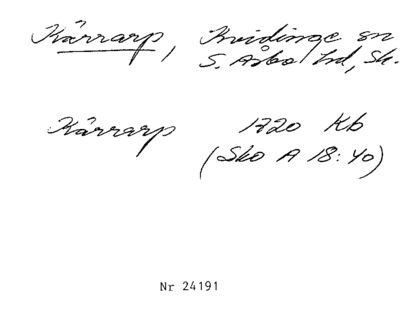 Kärrarp, Kvidinge sn
S. Åsbo hd, Sk.
Kärrarp 1720 Kb
(Sko A 18:40)
Nr 24191